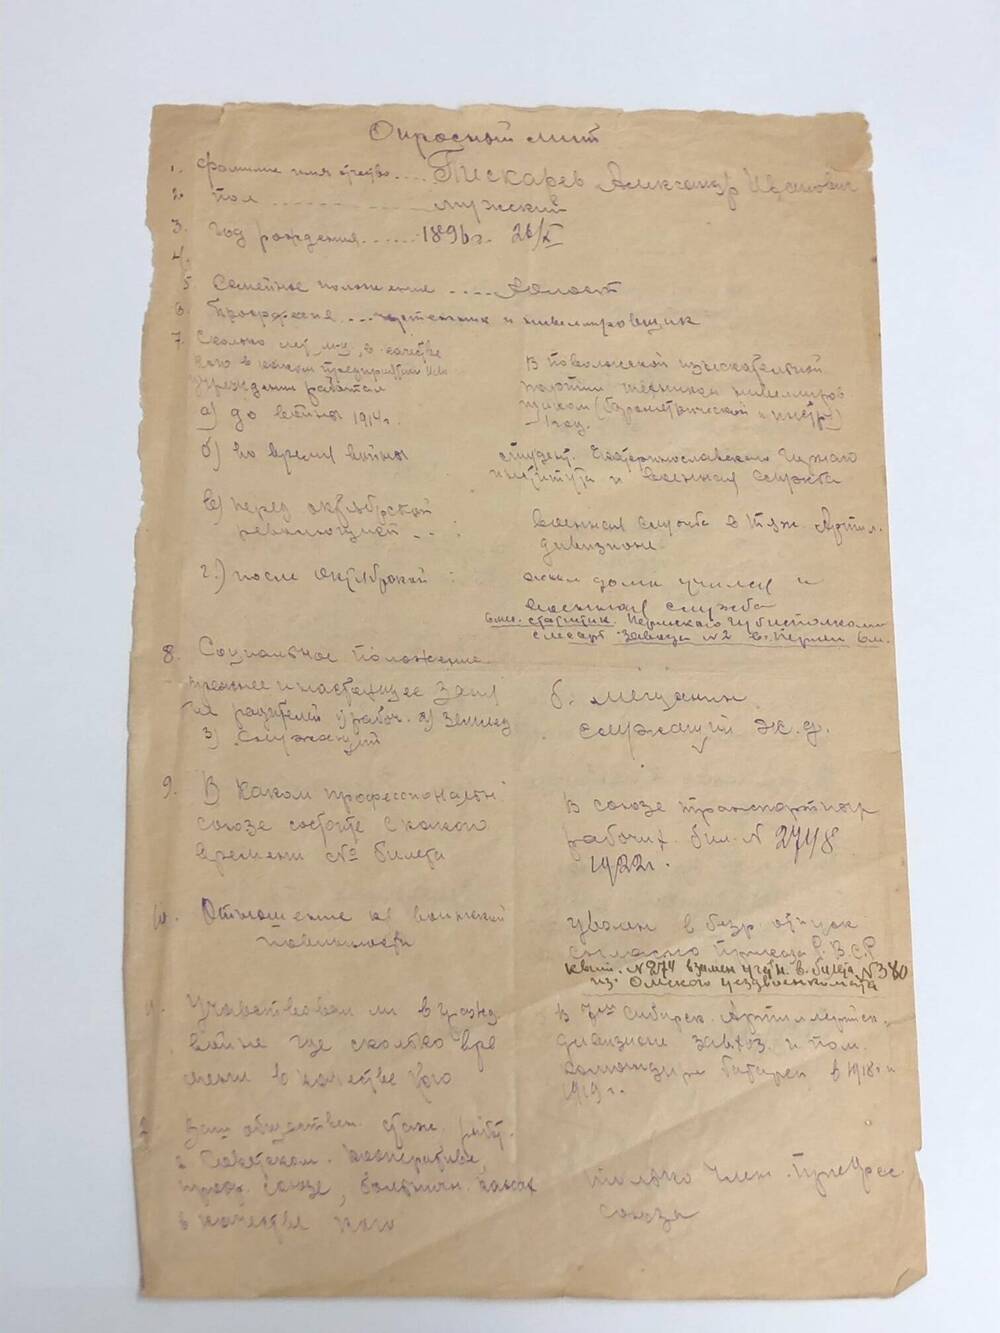 Опросный лист
1. Фамилие имя отчество .... Пискарев Александр Иванович
2. Пол ............ мужской
3. Год рождения ...... 1896 г. 26/X
4.
5. Семейное положение .... холост
6. Профессия ... чертежник и нивелировщик
7. Сколько лет, м-ц, в качестве
кого в каком предприятии или
учреждении работал
а) до войны 1914 г.
В Поволжской изыскательной
партии техником нивелиров
щиком (барометрической и инстр)
1 год.
б) во время войны
студент Екатеринославского Горного
института и военная служба
в) перед октябрьской
революцией ...
военная служба в тяж. Артил.
дивизионе.
г.) после Октябрьской :
жил дома учился и
военная служба
статистик Пермского Губисполкома
слесарь завода № 2 в г. Перми 6 м.
8. Социальное положение
прежнее и настоящее заня
тия родителей 1) рабоч. 2) землед
3) служащий
б. мещанин
служащий ж.д.
9. В каком профессиональн
союзе состоите с какого
времени № билета
В союзе транспортных
рабочих бил. N 2748
1922 г.
10. Отношение к воинской
повинности
уволен в безр. отпуск
согласно приказа Р.В.С.Р
квит. № 274 взамен учетн. в. билета № 380
из Омского уездвоенкомата
11. Участвовал ли в гражд.
войне где сколько вре
мени в качестве кого
в Сибирск. Артиллерийск.
дивизионе завхоз. и пом.
командира батареи в 1918 г. и
1919 г.
Ваш обществен. стаж. работ.
в Советском. кооперативе,
проф. союзе, больничн. кассах
в качестве кого
только член Профес.
союза